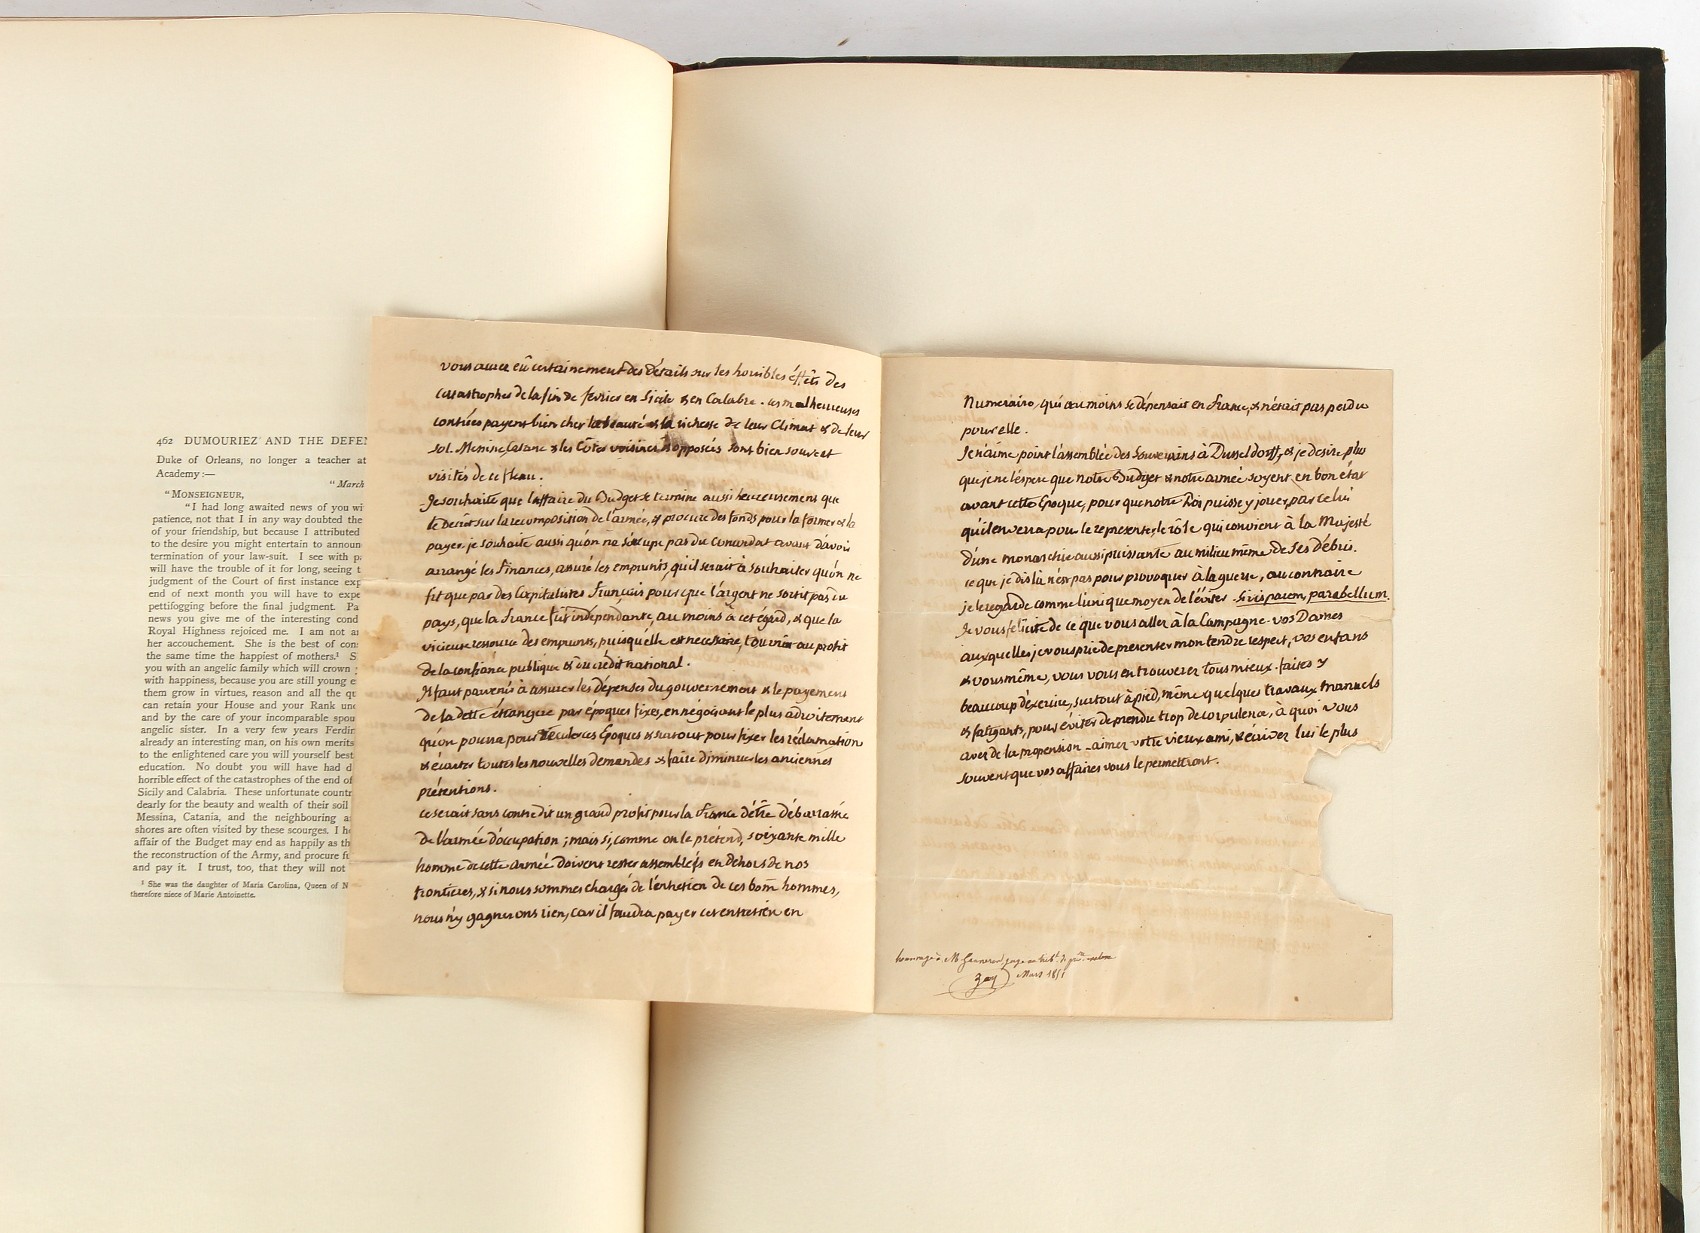 462 DUMOURIEZ AND THE DEFEN
Duke of Orleans, no longer a teacher at
Academy:—
"March
"MONSEIGNEUR,
"I had long awaited news of you wi
patience, not that I in any way doubted the
of your friendship, but because I attributed
to the desire you might entertain to announ
termination of your law-suit. I see with pa
will have the trouble of it for long, seeing t
judgment of the Court of first instance exp
end of next month you will have to expe
pettifogging before the final judgment. Pa
news you give me of the interesting cond
Royal Highness rejoiced me. I am not a
her accouchement. She is the best of con
the same time the happiest of mothers.¹ S
you with an angelic family which will crown
with happiness, because you are still young e
them grow in virtues, reason and all the qu
can retain your House and your Rank un
and by the care of your incomparable spou
angelic sister. In a very few years Ferdin
already an interesting man, on his own merits
to the enlightened care you will yourself best
education. No doubt you will have had d
horrible effect of the catastrophes of the end of
Sicily and Calabria. These unfortunate countr
dearly for the beauty and wealth of their soil
Messina, Catania, and the neighbouring a
shores are often visited by these scourges. I h
affair of the Budget may end as happily as th
the reconstruction of the Army, and procure f
and pay it. I trust, too, that they will not
¹ She was the daughter of Maria Carolina, Queen of N
therefore niece of Marie Antoinette.
vous aurez eû certainement des détails sur les horribles éffets des
catastrophes de la fin de fevrier en Sicile & en Calabre. ces malheureuses
contrées payent bien cher la beauté & la richesse de leur Climat & de leur
sol. Messine, Catane & les Côtes voisines & opposées sont bien souvent
visités de ce fleau.
Je souhaite que l'affaire du Budget se termine aussi heureusement que
le decret sur la recomposition de l'armée, & procure des fonds pour la former & la
payer. je souhaite aussi qu'on ne s'occupe pas du concordat avant d'avoir
arrangé les finances, assuré les emprunts, qu'il serait à souhaiter qu'on ne
fit que par des Capitalistes français pour que l'argent ne sortit pas du
pays, que la france fut indépendante, au moins à cet égard, & que la
vicieuse ressource des emprunts, puisqu'elle est necessaire, tournée au profit
de la confiance publique & du crédit national.
Il faut parvenir à assurer les dépenses du gouvernement & le payement
de la dette étrangere par époques fixes, en négociant le plus adroitement
qu'on pourra pour reculer ces époques & surtout pour fixer les réclamations
& écarter toutes les nouvelles demandes & faire diminuer les anciennes
prétentions.
ce serait sans contredit un grand profit pour la france d'être débarrassée
de l'armée d'occupation; mais si, comme on le prétend, soixante mille
homme de cette armée doivent rester assemblés en dehors de nos
frontieres, & si nous sommes chargés de l'entretien de ces bons hommes,
nous n'y gagnerons rien, car il faudra payer cet entretien en
Numeraire, qui au moins se dépensait en france, & n'était pas perdu
pour elle.
Je n'aime point l'assemblée des Souverains à Dusseldorff, & je desire plus
que je n'éspere que notre Budget & notre armée soyent en bon état
avant cette époque, pour que notre Roi puisse y jouer, par celui
qu'il enverra pour le representer, le rôle qui convient à la Majesté
d'une monarchie aussi puissante au milieu même de ses débris.
ce que je dis là n'est pas pour provoquer à la guerre, au contraire
je le regarde comme l'unique moyen de l'éviter. Si vis pacem, para bellum.
Je vous félicite de ce que vous aller à la Campagne. vos Dames
auxquelles je vous prie de presenter mon tendre respect, vos enfans
& vous même, vous vous en trouverez tous mieux. faites y
beaucoup d'éxercice, surtout à pied, même quelques travaux manuels
& fatigants, pour éviter de prendre trop de corpulence, à quoi vous
avez de la propension. aimez votre vieux ami, & écrivez lui le plus
souvent que vos affaires vous le permettront.
hommage à M juge au
Mars 1851